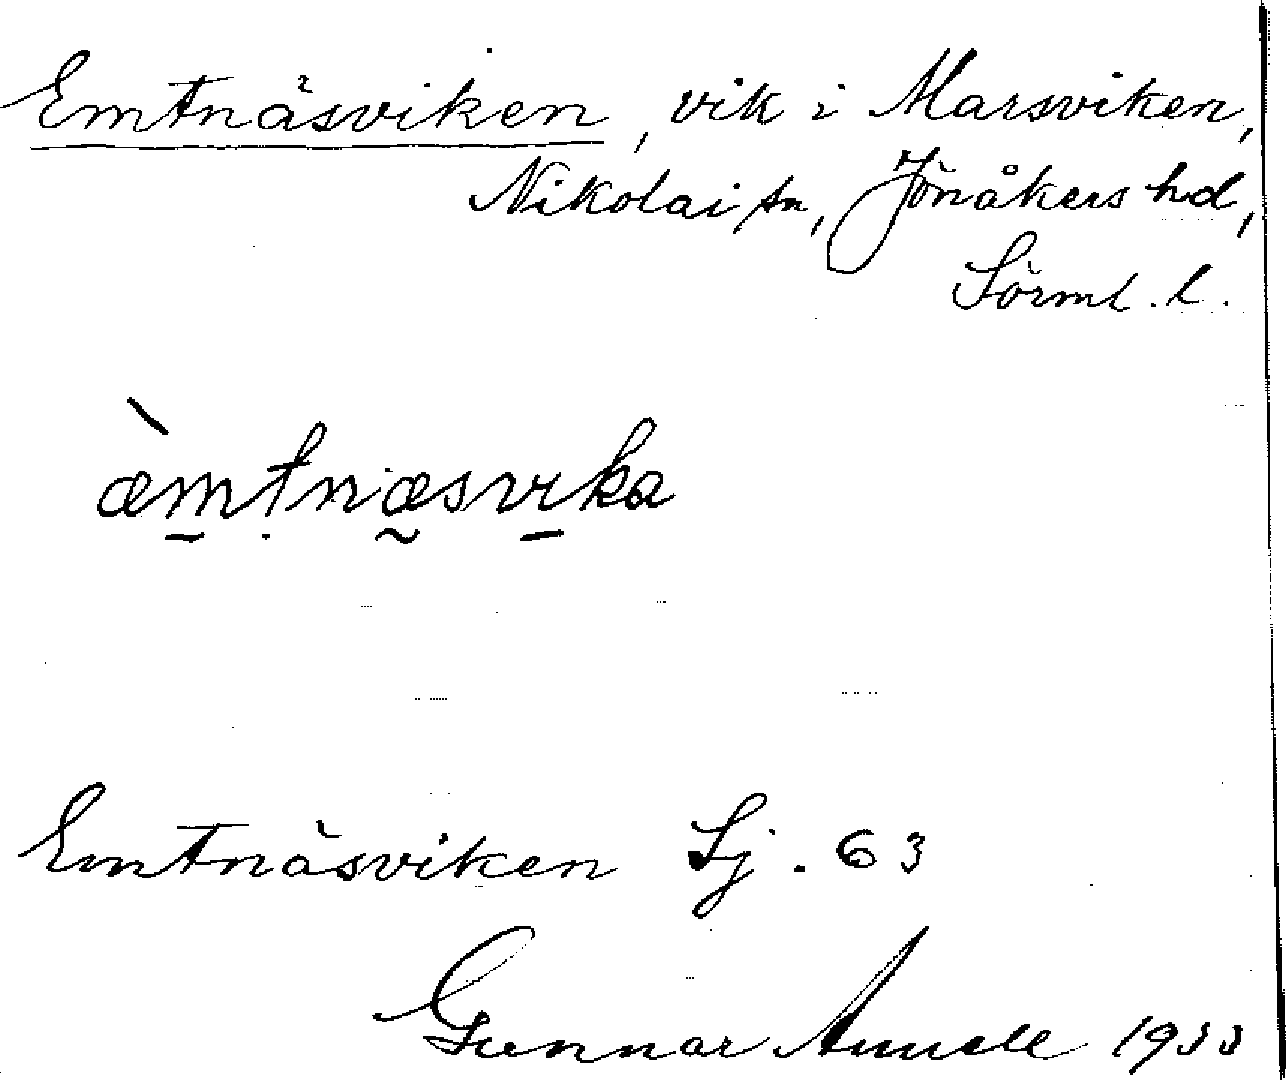 Emtnäsviken, vik i Marsviken,
Nikolai sn, Jönåkers hd,
Sörml. l.
æ̀m̱tṇæ̰svi̱ka
Emtnäsviken Sj. 63
Gunnar 1933